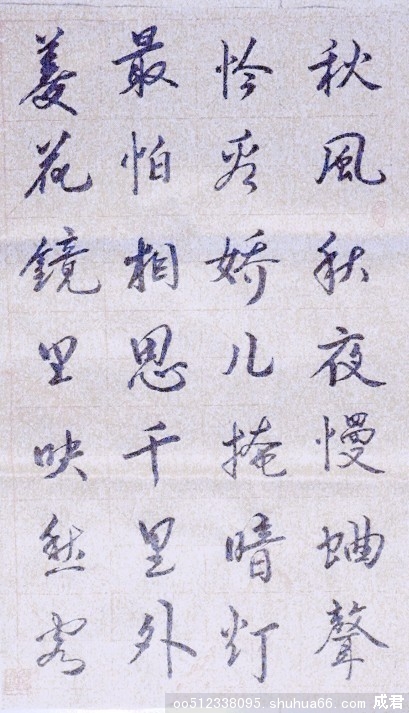 秋風秋夜慢蛐聲
怜看娇儿掩暗灯
最怕相思千里外
菱花鏡里映愁容
oo512338095. shuhua66. com 成君